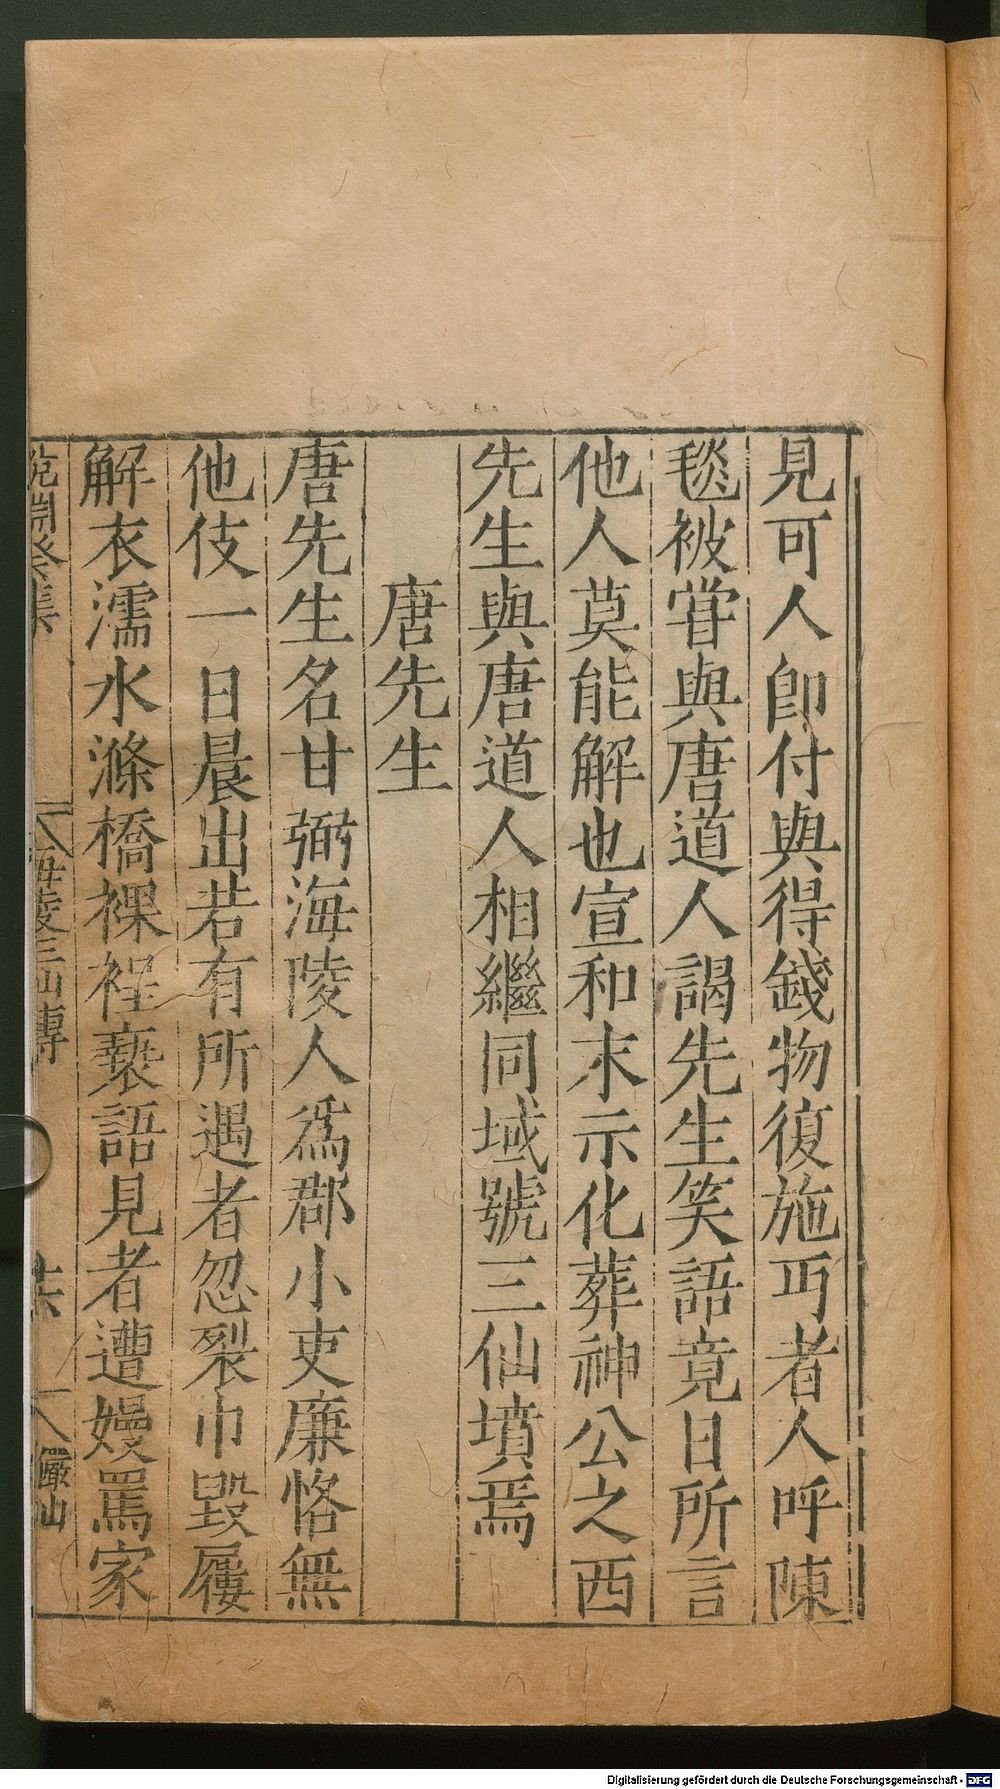 見可人卽付與得錢物復施丐者人呼陳
毯被甞與唐道人謁先生笑語竟日所言
他人莫能解也宣和末示化葬神公之西
先生與唐道人相繼同域號三仙墳焉
唐先生
唐先生名甘弼海陵人爲郡小吏廉恪無
他伎一日晨出若有所遇者忽裂巾毀屨
解衣濡水滌橋裸裎䙝語見者遭嫚罵家
海陵三仙傳
儼山
Digitalisierung gefördert durch die Deutsche Forschungsgemeinschaft - DFG